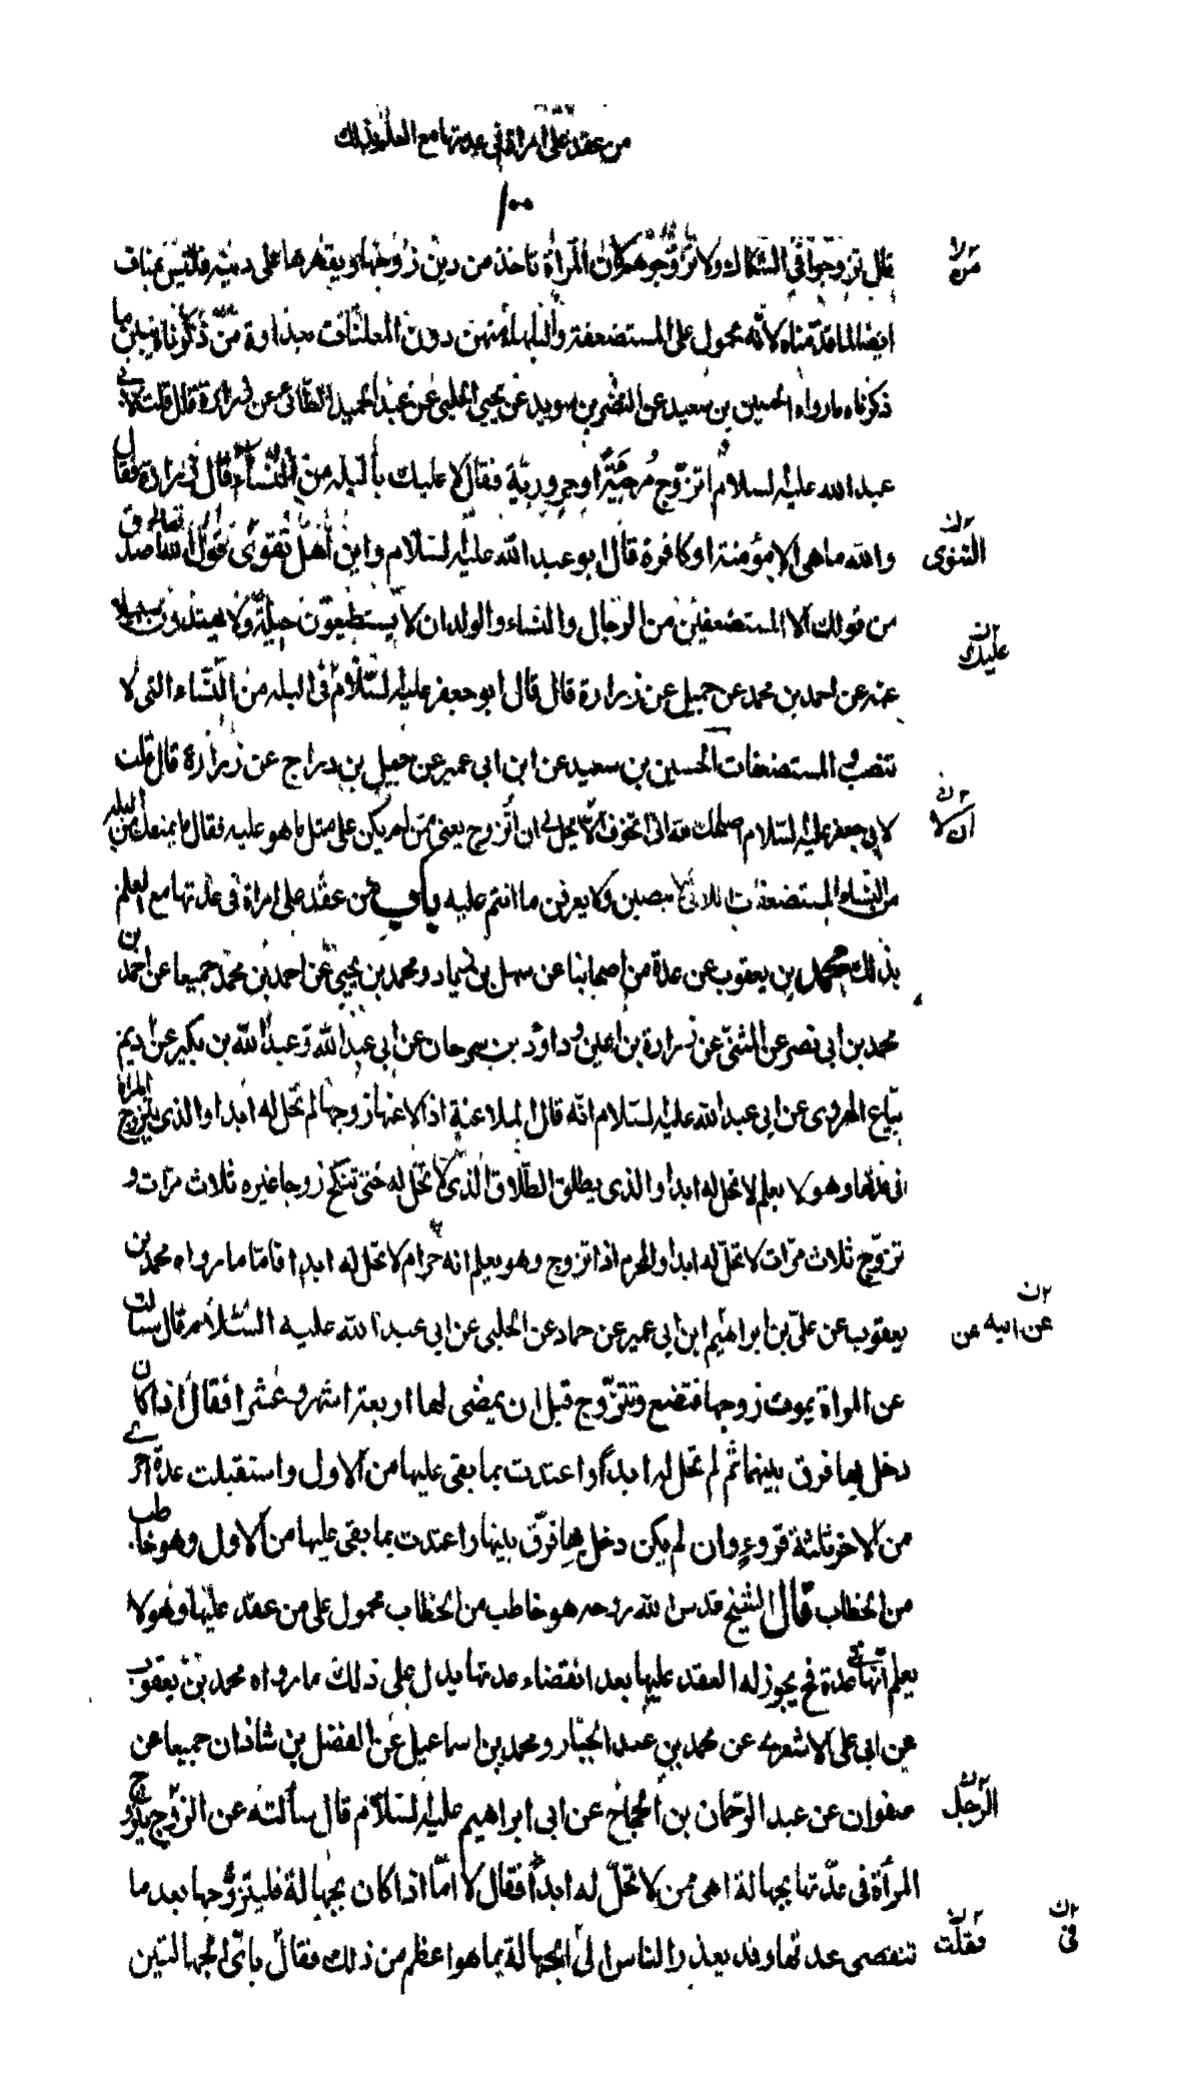 من عقد على امراة فى عدتها مع العلم بذلك
١٠٠
قال تزوجوا فى الشكاك ولا تزوجوهم لان المرأة تاخذ من دين زوجها ويقهرها على دينه فليس بمناف
ايضا لما قدمناه لأنه محمول على المستضعفة والبله منهن دون المعلنات بعداوة من ذكرناه يبين ما
ذكرناه ما رواه الحسين بن سعيد عن النضر بن سويد عن يحيى الحلبى عن عبد الحميد الطائى عن زرارة قال قلت لابى
عبد الله عليه السلام اتزوج مرجئة او حرورية فقال لا عليك بالبله من النساء قال زرارة فقال
والله ما هى الا مؤمنة او كافرة قال ابو عبد الله عليه السلام واين اهل تقوى قول الله تعالى اصدق
من قولك الا المستضعفين من الرجال والنساء والولدان لا يستطيعون حيلة ولا يهتدون سبيلا
عنه عن احمد بن محمد عن جميل عن زرارة قال قال ابو جعفر عليه السلام فى البله من النساء التى لا
تنصب والمستضعفات الحسين بن سعيد عن ابن ابى عمير عن جميل بن دراج عن زرارة قال قلت
لابى جعفر عليه السلام اصلحك الله انى اتخوف الا يحل لى ان اتزوج يعنى ممن لم يكن على مثل ما هو عليه فقال ما يمنعك من البله
من النساء المستضعفات اللاتى لا ينصبن ولا يعرفن ما انتم عليه باب من عقد على امراة فى عدتها مع العلم
بذلك محمد بن يعقوب عن عدة من اصحابنا عن سهل بن زياد ومحمد بن يحيى عن احمد بن محمد جميعا عن احمد بن
محمد بن ابى نصر عن المثنى عن زرارة بن اعين وداود بن سرحان عن ابى عبد الله وعبد الله بن بكير عن اديم
بياع الهروى عن ابى عبد الله عليه السلام انه قال الملاعنة اذا لاعنها زوجها لم تحل له ابدا والذى يتزوج المراة
فى عدتها وهو لا يعلم لا تحل له ابدا والذى يطلق الطلاق الذى لا تحل له حتى تنكح زوجا غيره ثلاث مرات و
تزوج ثلاث مرات لا تحل له ابدا والمحرم اذا تزوج وهو يعلم انه حرام لا تحل له ابدا فاما ما رواه محمد بن
يعقوب عن على بن ابراهيم ابن ابى عمير عن حماد عن الحلبى عن ابى عبد الله عليه السلام قال سالت
عن المراة يموت زوجها فتضع وتتزوج قبل ان يمضى لها اربعة اشهر وعشرا فقال اذا كان
دخل بها فرق بينهما ثم لم تحل له ابدا واعتدت بما بقى عليها من الاول واستقبلت عدة اخرى
من الاخر ثلثة قروء وان لم يكن دخل بها فرق بينها واعتدت بما بقى عليها من الاول وهو خاطب
من الخطاب قال الشيخ قدس الله روحه هو خاطب من الخطاب محمول على من عقد عليها وهو لا
يعلم انها فى عدة فح يجوز له العقد عليها بعد انقضاء عدتها يدل على ذلك ما رواه محمد بن يعقوب
عن ابى على الاشعرى عن محمد بن عبد الجبار ومحمد بن اسماعيل عن الفضل بن شاذان جميعا عن
صفوان عن عبد الرحمان بن الحجاج عن ابى ابراهيم عليه السلام قال سألته عن الزوج يتزوج
المرأة فى عدتها بجهالة اهى ممن لا تحل له ابدا فقال لا اما اذا كان بجهالة فليتزوجها بعد ما
تنقضى عدتها وقد يعذر الناس الى الجهالة بما هو اعظم من ذلك فقال باى الجهالتين
التقوى
عليك
ان لا
عن ابيه عن
الرجل
فقلت
فى